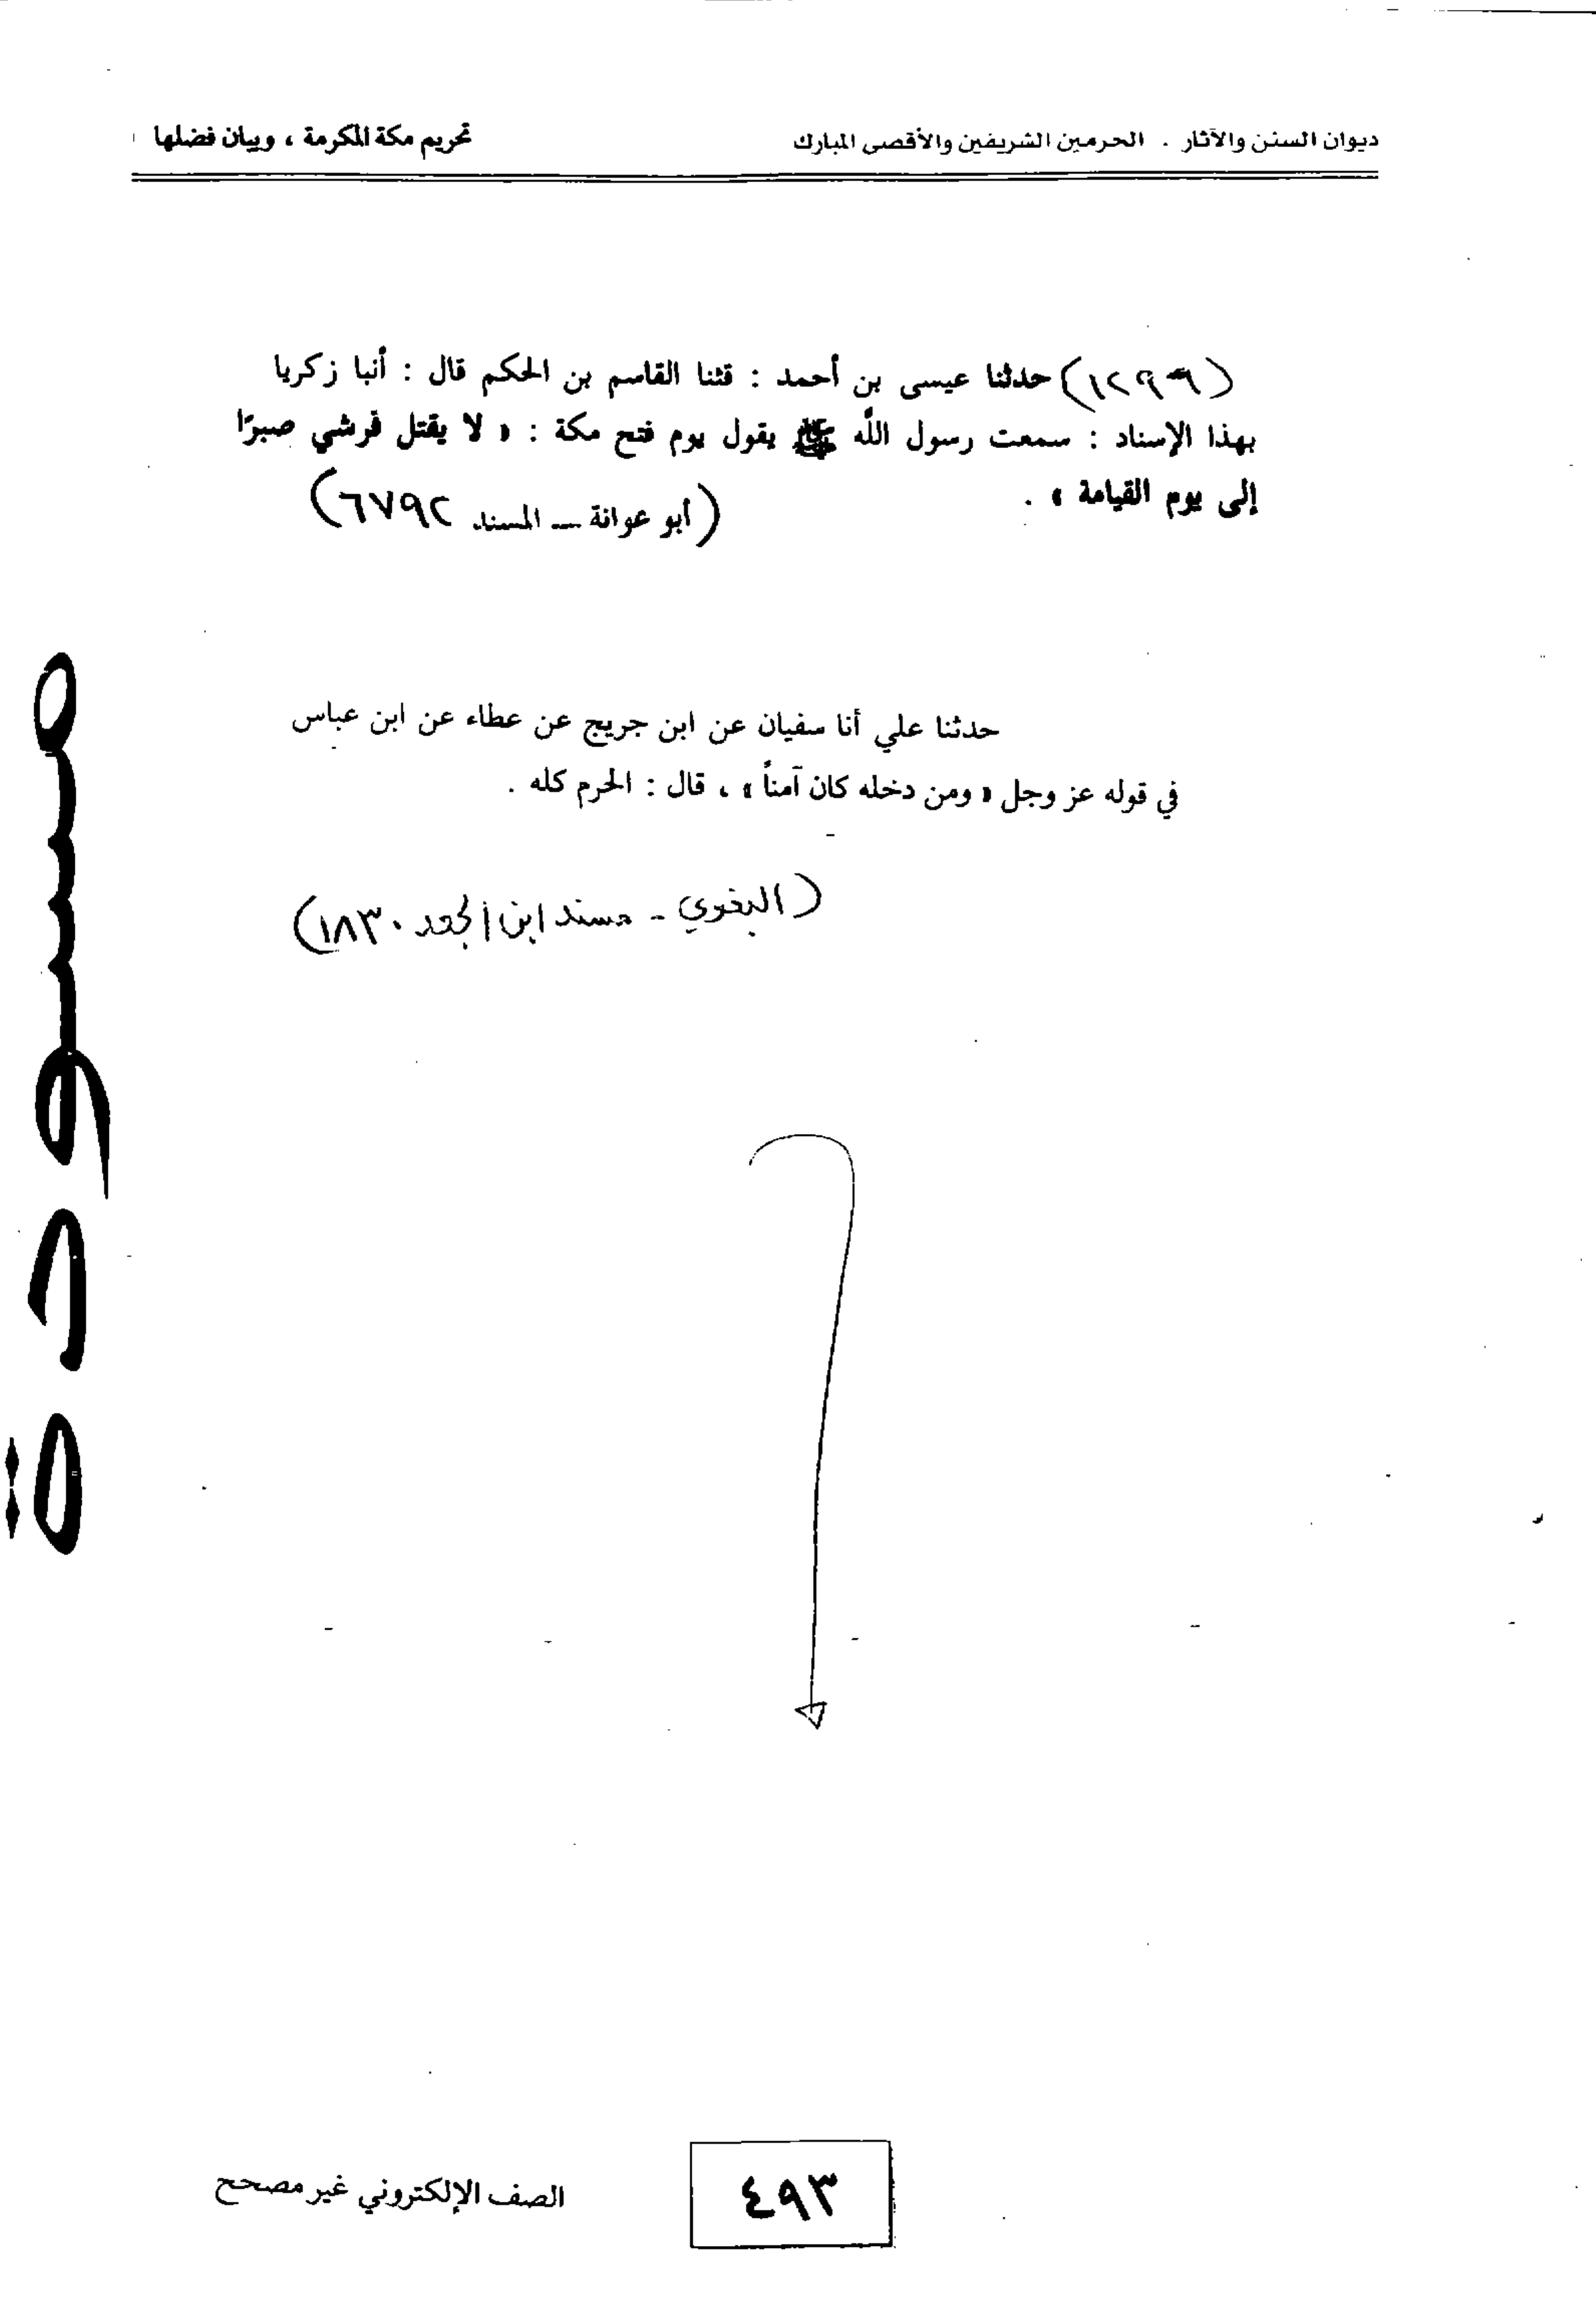 ديوان السنن والآثار . الحرمين الشريفين والأقصى المبارك
تحريم مكة المكرمة ، وبيان فضلها
حدثنا عيسى بن أحمد : قثنا القاسم بن الحكم قال : أنبا زكريا
بهذا الإسناد : سمعت رسول الله ﷺ يقول يوم فتح مكة : « لا يقتل قرشي صبرًا
إلى يوم القيامة » .
(أبو عوانة – المسند ٦٧٩٢)
حدثنا علي أنا سفيان عن ابن جريج عن عطاء عن ابن عباس
في قوله عز وجل « ومن دخله كان آمناً » ، قال : الحرم كله .
(البغوي - مسند ابن الجعد ١٨٣٠)
مسودة
٤٩٣
الصف الإلكتروني غير مصحح